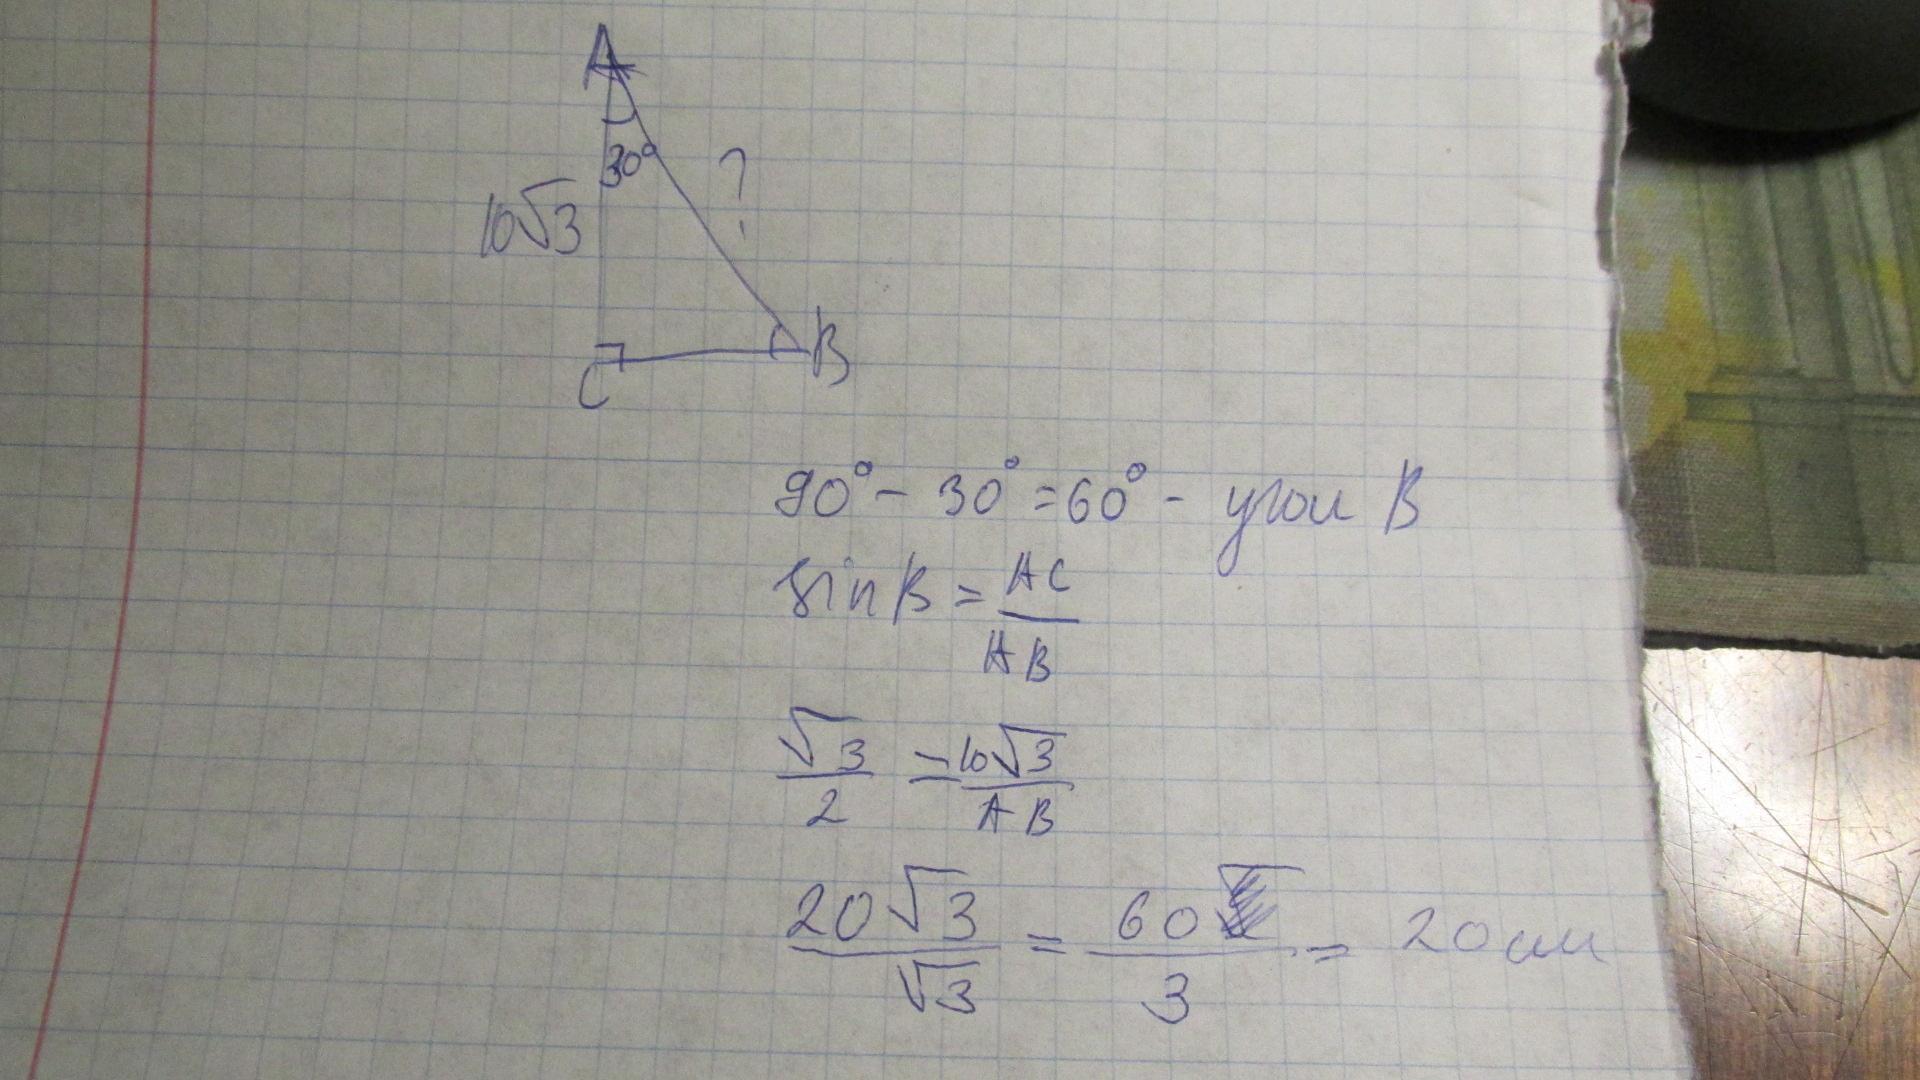 A
30°
?
10√3
C
B
90° - 30° = 60° - угол B
sin B = AC/AB
√3/2 = 10√3/AB
20√3/√3 = 60/3 = 20 см